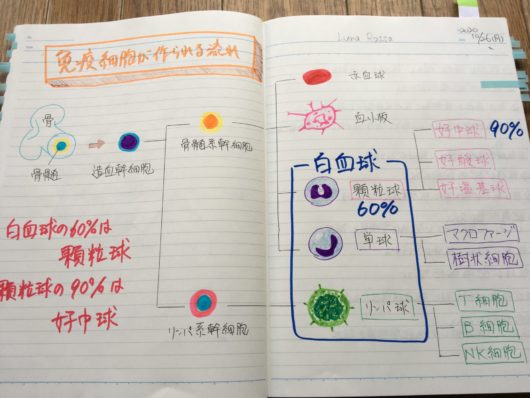 免疫細胞が作られる流れ
骨
骨髄
造血幹細胞
骨髄系幹細胞
リンパ系幹細胞
白血球の60%は
顆粒球
顆粒球の90%は
好中球
Luna Rossa
10/26(月)
赤血球
血小板
白血球
顆粒球
60%
単球
リンパ球
好中球 90%
好酸球
好塩基球
マクロファージ
樹状細胞
T細胞
B細胞
NK細胞